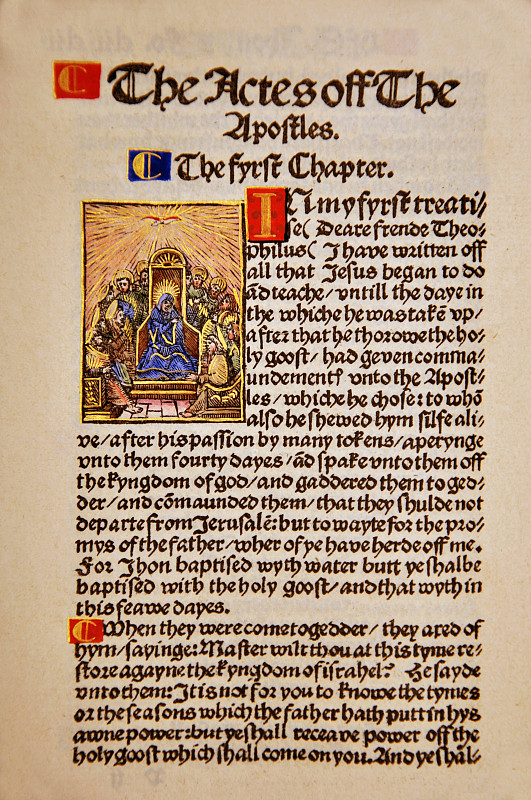 C The Actes off The
Apostles.
C The fyrst Chapter.
IN my fyrst treati/
se (Deare frende Theo/
philus( I have written off
all that Jesus began to do
ād teache/ vntill the daye in
the whiche he was takē vp/
after that he thorowe the ho/
ly goost/ had geven comma/
undementꝭ vnto the Apost/
les/ whiche he chose: to whō
also he shewed hym silfe ali/
ve/ after his passion by many tokens/ aperynge
vnto them fourty dayes/ ād spake vnto them off
the kyngdom of god/ and gaddered them to ged/
der/ and cōmaunded them/ that they shulde not
departe from Jerusalē: but to wayte for the pro/
mys of the father/ wher of ye have herde off me.
For Jhon baptised wyth water butt ye shalbe
baptised with the holy goost/ and that wyth in
this feawe dayes.
C When they were come togedder/ they axed of
hym/ sayinge: Master wilt thou at this tyme re/
store agayne the kyngdom of israhel? He sayde
vnto them: It is not for you to knowe the tymes
or the seasons which the father hath putt in hys
awne power: but ye shall receave power off the
holy goost which shall come on you. And ye shāl/